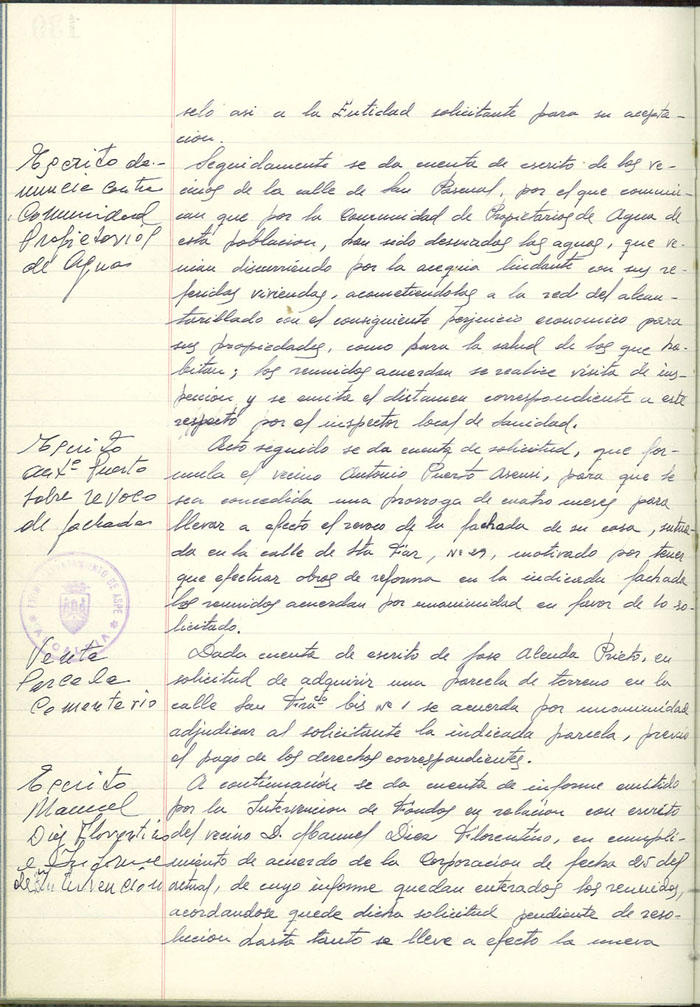 selo asi a la Entidad solicitante para su acepta-
cion.
Escrito de-
nuncia contra
Comunidad
Propietarios
de Aguas
Seguidamente se da cuenta de escrito de los ve-
cinos de la calle de San Pascual, por el que comuni-
can que por la Comunidad de Propietarios de Agua de
esta poblacion, han sido desviadas las aguas, que ve-
nian discurriendo por la acequia lindante con sus re-
feridas viviendas, acometiendolas a la red del alcan-
tarillado con el consiguiente perjuicio economico para
sus propiedades, como para la salud de los que ha-
bitan; los reunidos acuerdan se realice visita de ins-
peccion y se emita el dictamen correspondiente a este
respecto por el inspector local de Sanidad.
Escrito
Antº Puerto
sobre revoco
de fachadas
Acto seguido se da cuenta de solicitud, que for-
mula el vecino Antonio Puerto Asensi, para que le
sea concedida una prorroga de cuatro meses para
llevar a efecto el revoco de la fachada de su casa, situa-
da en la calle de Sta Faz, Nº 29, motivado por tener
que efectuar obras de reforma en la indicada fachada
los reunidos acuerdan por unanimidad en favor de lo so-
licitado.
AYUNTAMIENTO DE ASPE
ALCALDIA
Venta
Parcela
Cementerio
Dada cuenta de escrito de Jose Alenda Prieto, en
solicitud de adquirir una parcela de terreno en la
calle San Francº bis Nº 1 se acuerda por unanimidad
adjudicar al solicitante la indicada parcela, previo
el pago de los derechos correspondientes.
Escrito
Manuel
Diez Florentino
e Informe
de Intervención
A continuación se da cuenta de informe emitido
por la Intervencion de Fondos en relacion con escrito
del vecino D. Manuel Diez Florentino, en cumpli-
miento de acuerdo de la Corporacion de fecha 25 del
actual, de cuyo informe quedan enterados los reunidos,
acordandose quede dicha solicitud pendiente de reso-
lucion hasta tanto se lleve a efecto la nueva